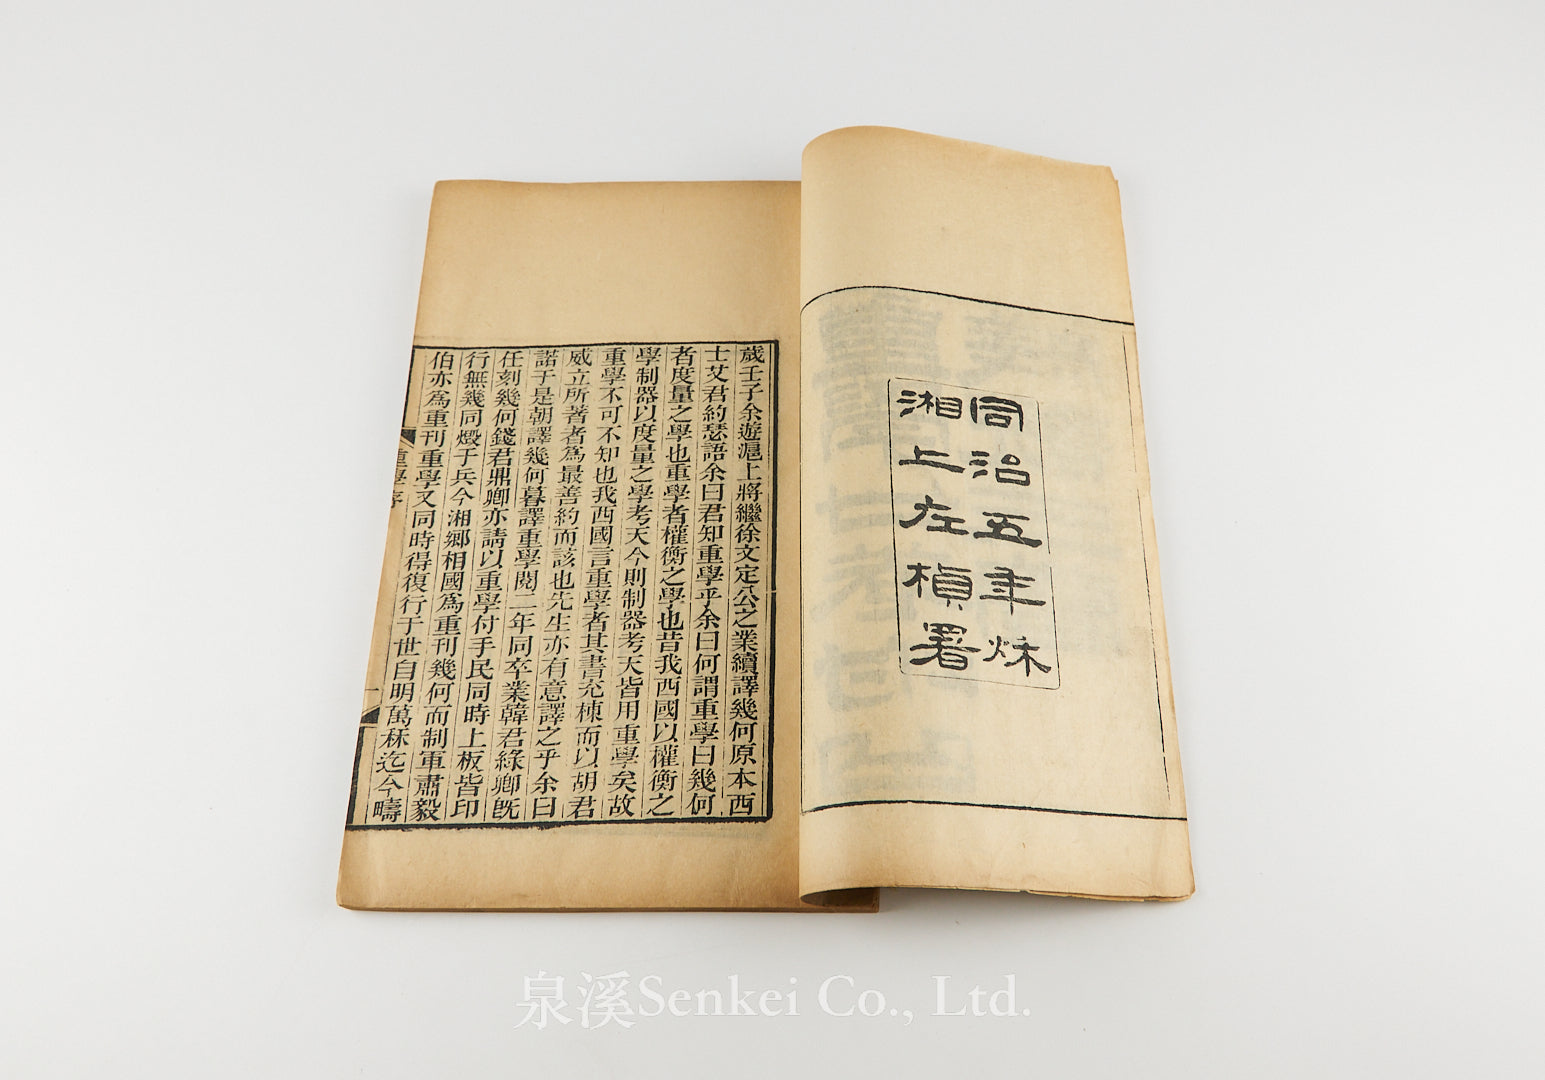 同治五年秌
湘上左楨署
歲壬子余遊滬上將繼徐文定公之業續譯幾何原本西
士艾君約瑟語余曰君知重學乎余曰何謂重學曰幾何
者度量之學也重學者權衡之學也昔我西國以權衡之
學制器以度量之學考天今則制器考天皆用重學矣故
重學不可不知也我西國言重學者其書充棟而以胡君
威立所著者爲最善約而該也先生亦有意譯之乎余曰
諾于是朝譯幾何暮譯重學閱二年同卒業韓君綠卿旣
任刻幾何錢君鼎卿亦請以重學付手民同時上板皆印
行無幾同燬于兵今湘鄉相國爲重刊幾何而制軍肅毅
伯亦爲重刊重學又同時得復行于世自明萬秝迄今疇
重學序
一
泉溪Senkei Co., Ltd.